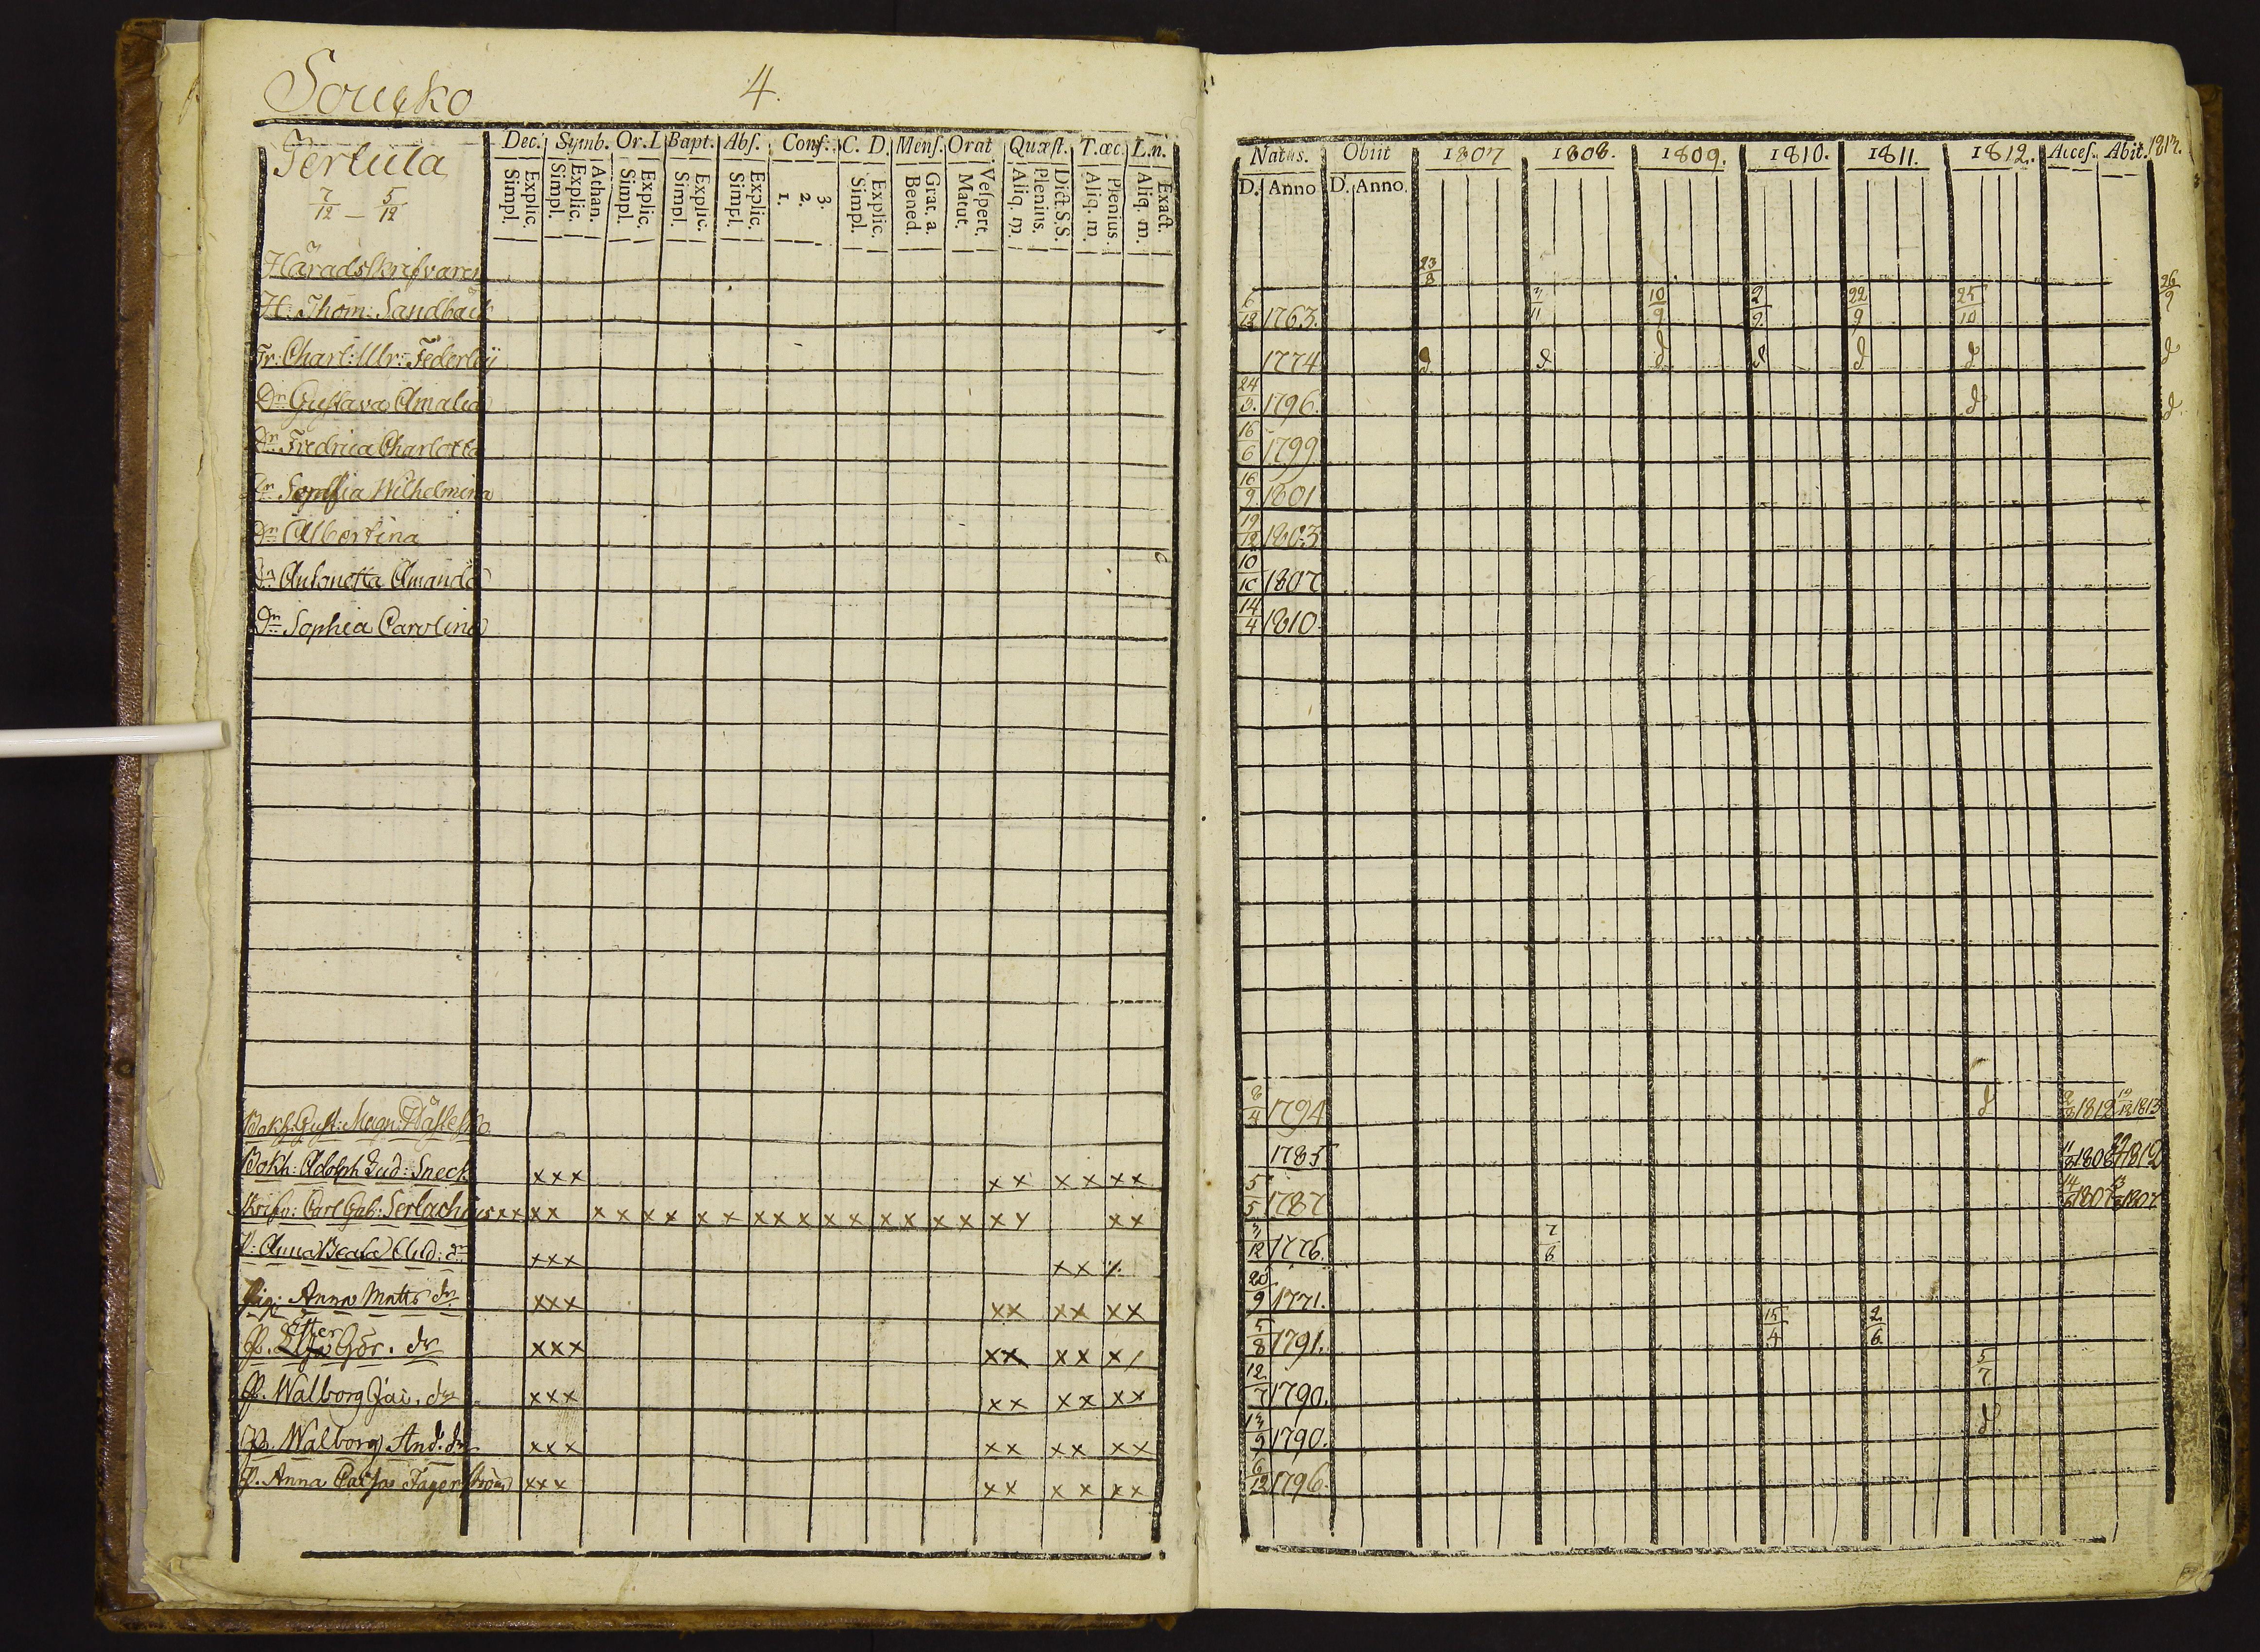 4.
Pertula
7/12 – 5/12
Dec. Symb. Or. L Bapt. Abs. Conf. C. D. Mens. Orat. Quæst. T. œc. L. n.
Simpl. Explic. Simpl. Explic. Athan. Simpl. Explic. Simpl. Explic. Simpl. Explic. 1. 2. 3. Simpl. Explic. Bened. Grat. a. Matut. Vespert. Aliq. m. Plenius. Dict. S.S. Aliq. m. Plenius. Aliq. m. Exact.
Häradsskrifvaren
H. Thom: Sandbäck
Fr. Charl: Ulr: Federley
Dr Gustava Amalia
Dr Fredrica Charlotta
Dr Sophia Wilhelmina
Dr Albertina
Dr Antonetta Amanda
Dr Sophia Carolina
Bokh: Gust: Magn:
Bokh: Adolph Lud: Sneck xxx xx xx xx
Skrifv: Carl Gab: Serlachius xx xx xx xx xx xx xx xx xx xx xx
P: Anna Beata And: dr xxx xx
Pig: Anna Matts dr xxx xx xx xx
P. Gör. dr xxx xx xx x/
P. Walborg dr xxx xx xx xx
P. Walborg And: dr xxx xx xx xx
P. Anna Caisa Fagerström xxx xx xx xx
Natus. Obiit 1807 1808. 1809. 1810. 1811. 1812. Acces. Abit. 1813.
D. Anno D. Anno.
23/8
6/12 1763. 3/11 10/9 2/9 22/9 25/10 26/9
1774 d d d d d d d
24/3. 1796. d d
16/6 1799
16/9 1801
19/12 1803
10/10 1807
14/4 1810
8/4 1794 d 1812 1813
1785 1808 1812
5/5 1787 1807 1807
3/12 1776. 7/8
20/9 1771.
5/8 1791. 15/4 2/6
12/7 1790. 5/7
1790. d
6/12 1796.